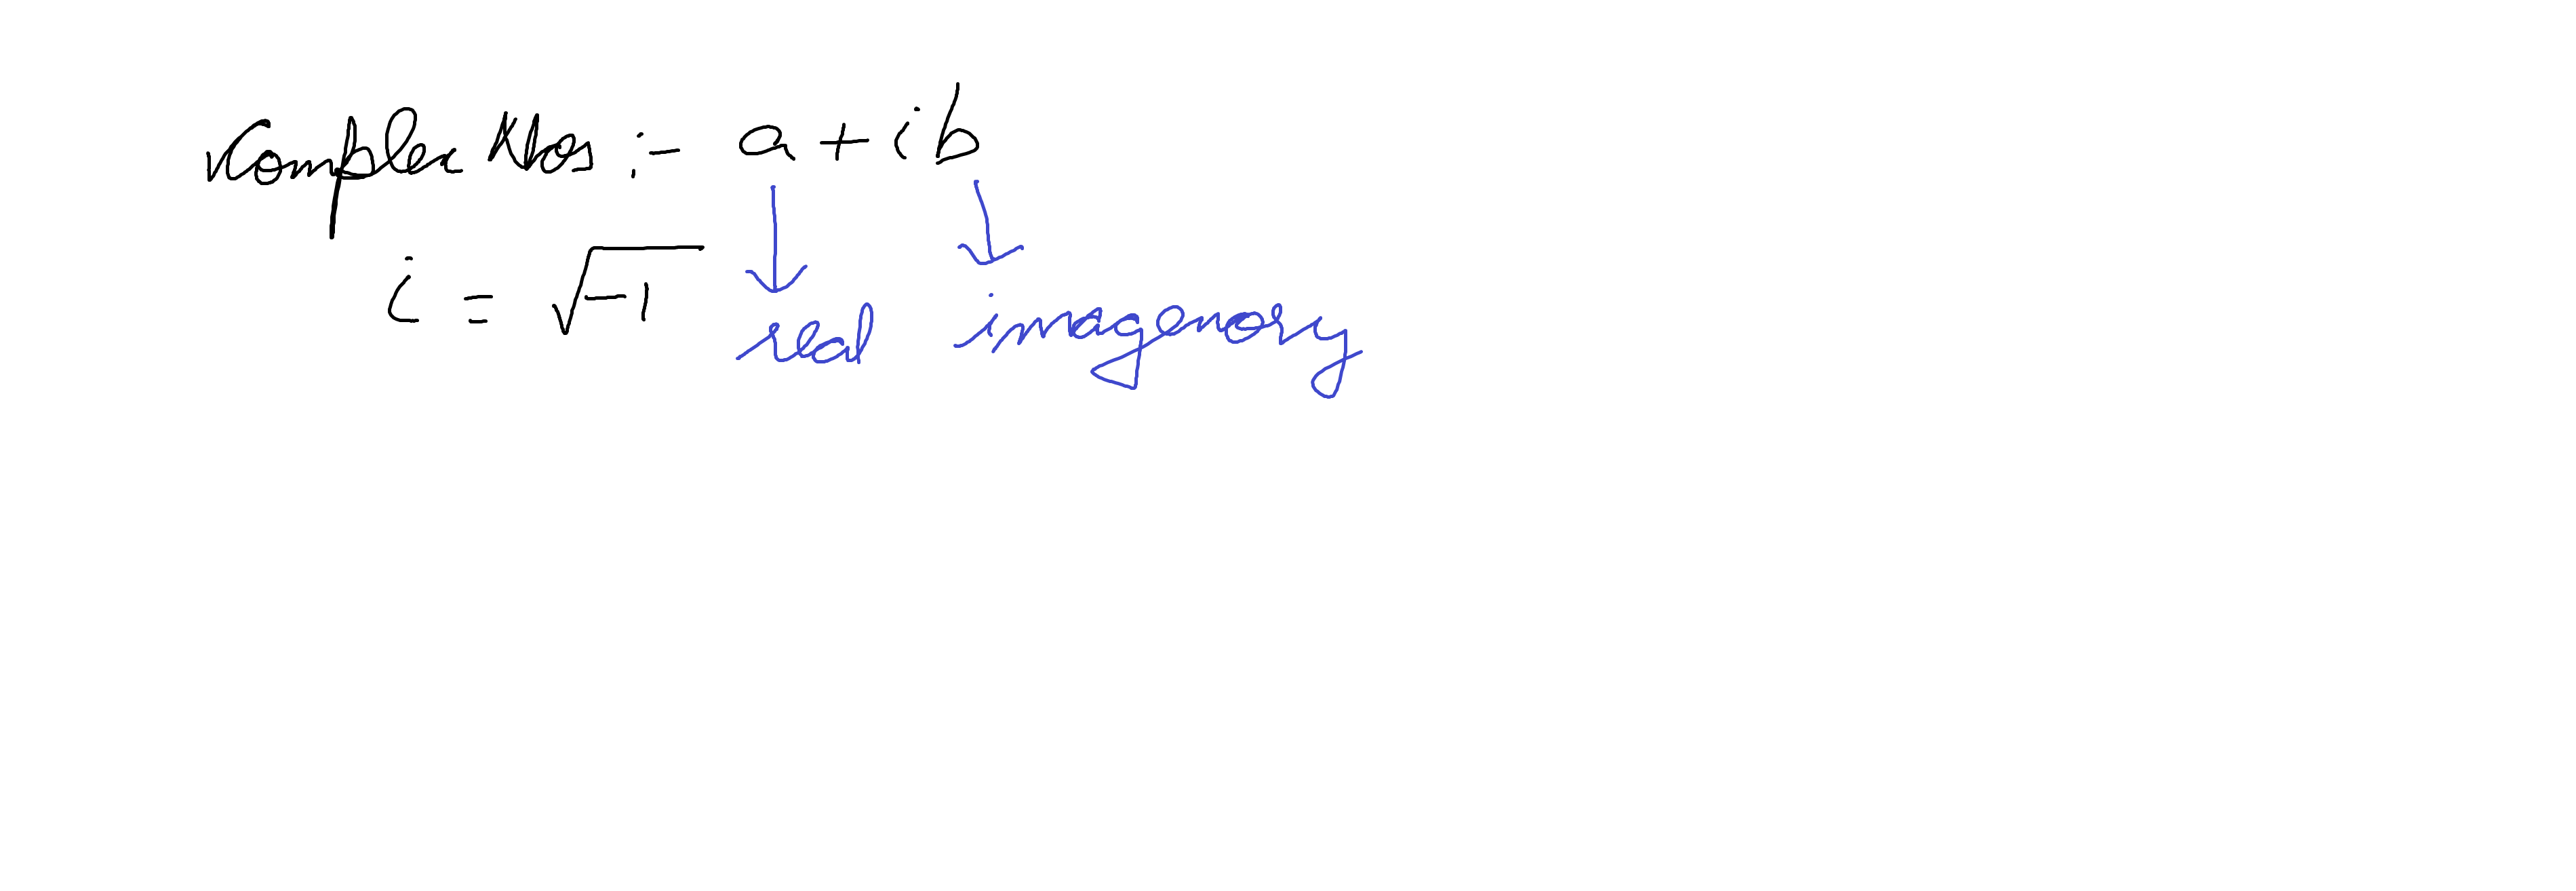 Complex Nos :- a + ib
i = √-1
real imagenory